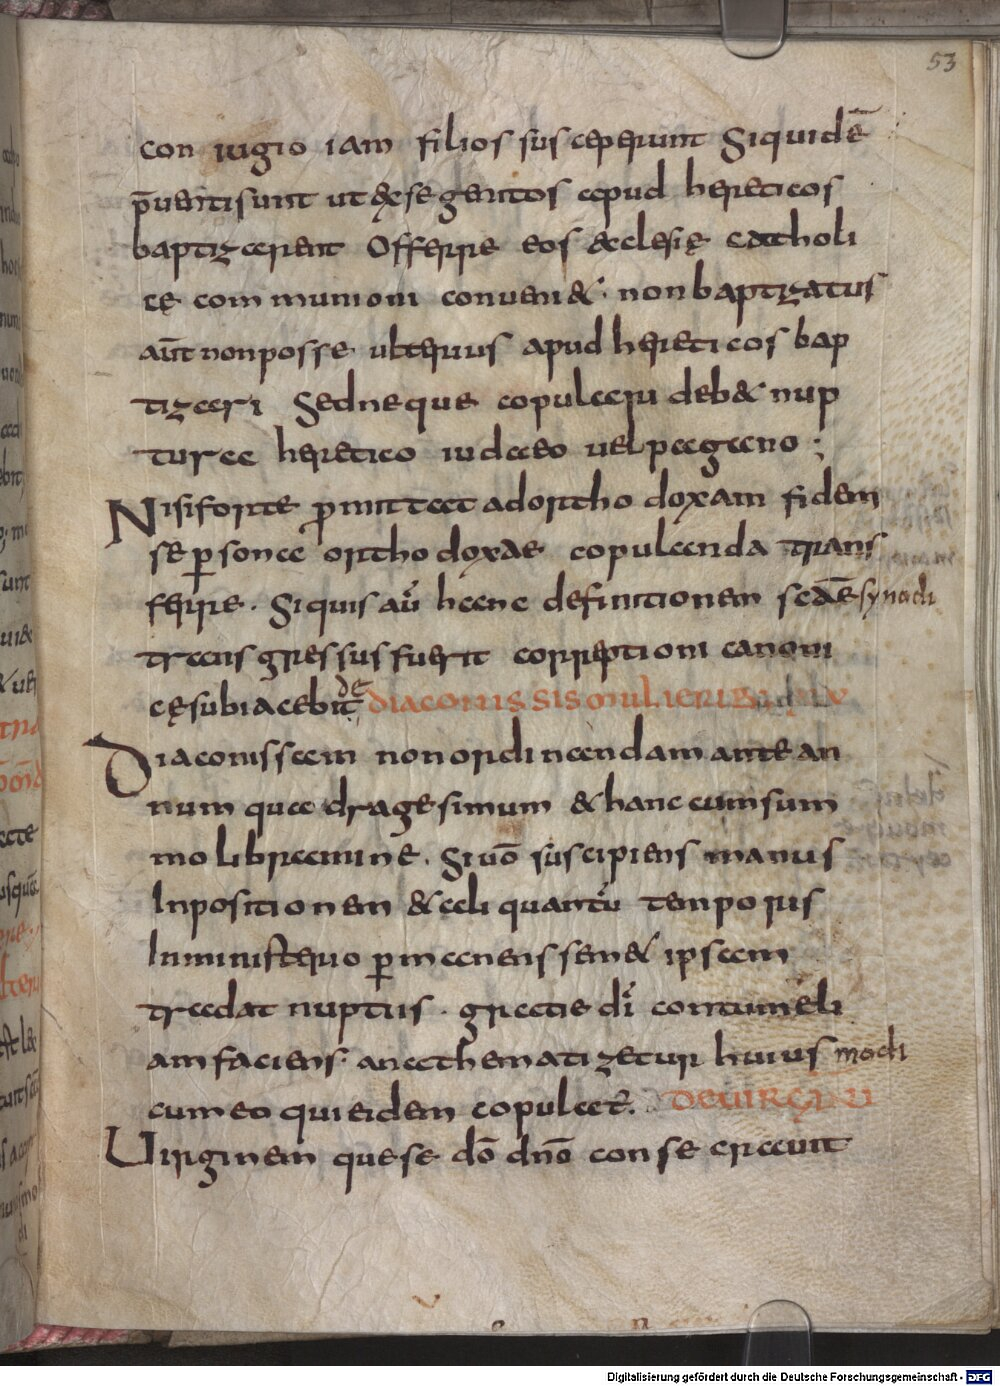 53
con iugio iam filios susceperunt Siquidē
p̄uenti sunt ut & ex se genitos apud hereticos
baptizarent Offerre eos ecclesię catholi
cę communioni conueni&. non baptizatus
aūt non posse ulterius apud hereticos bap
tizari Sed neque copulari deb& nup
turae heretico iudaeo uel pagano ;
Nisi forte p̄mittat ad orthodoxam fidem
se personae orthodoxae copulanda trans
ferre. Siquis aū hanc definitionem scāe synodi
transgressus fuerit correptioni canoni
cę subiacebit de DIACONISSIS MULIERIBUS
Diaconissam non ordinandam ante an
num quadragesimum & hanc cum sum
mo libramine. Si uō suscipiens manus
Inpositionem & aliquantū temporis
In ministerio permanens sem& ipsam
tradat nuptiis. gratie dī contumeli
am faciens. anathematizetur huiusmodi
cum eo qui eidem copulat. DE UIRGINI
Uirginem que se dō dnō consecrauit
Digitalisierung gefördert durch die Deutsche Forschungsgemeinschaft - DFG